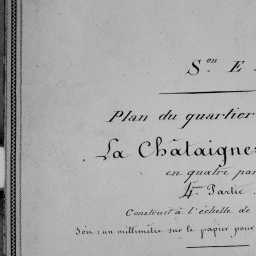 S.on E.
Plan du quartier
La Châtaigne
en quatre par
4.e Partie.
Construit à l'échelle de
un millimètre sur le papier pour